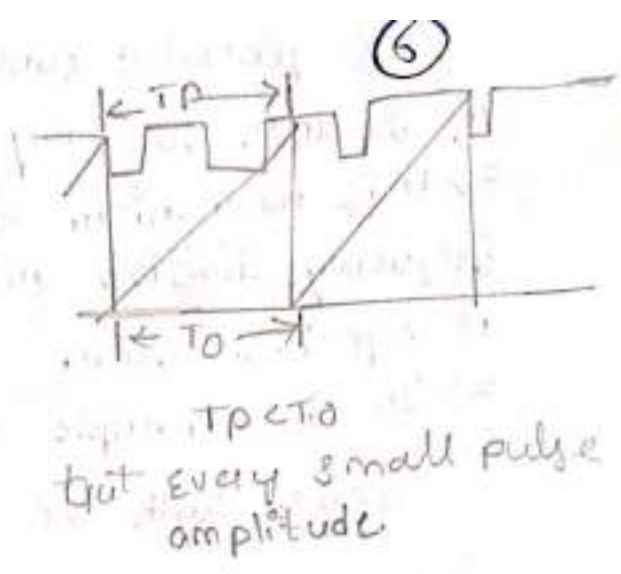 6
TP
To
TP < To
but every small pulse
amplitude